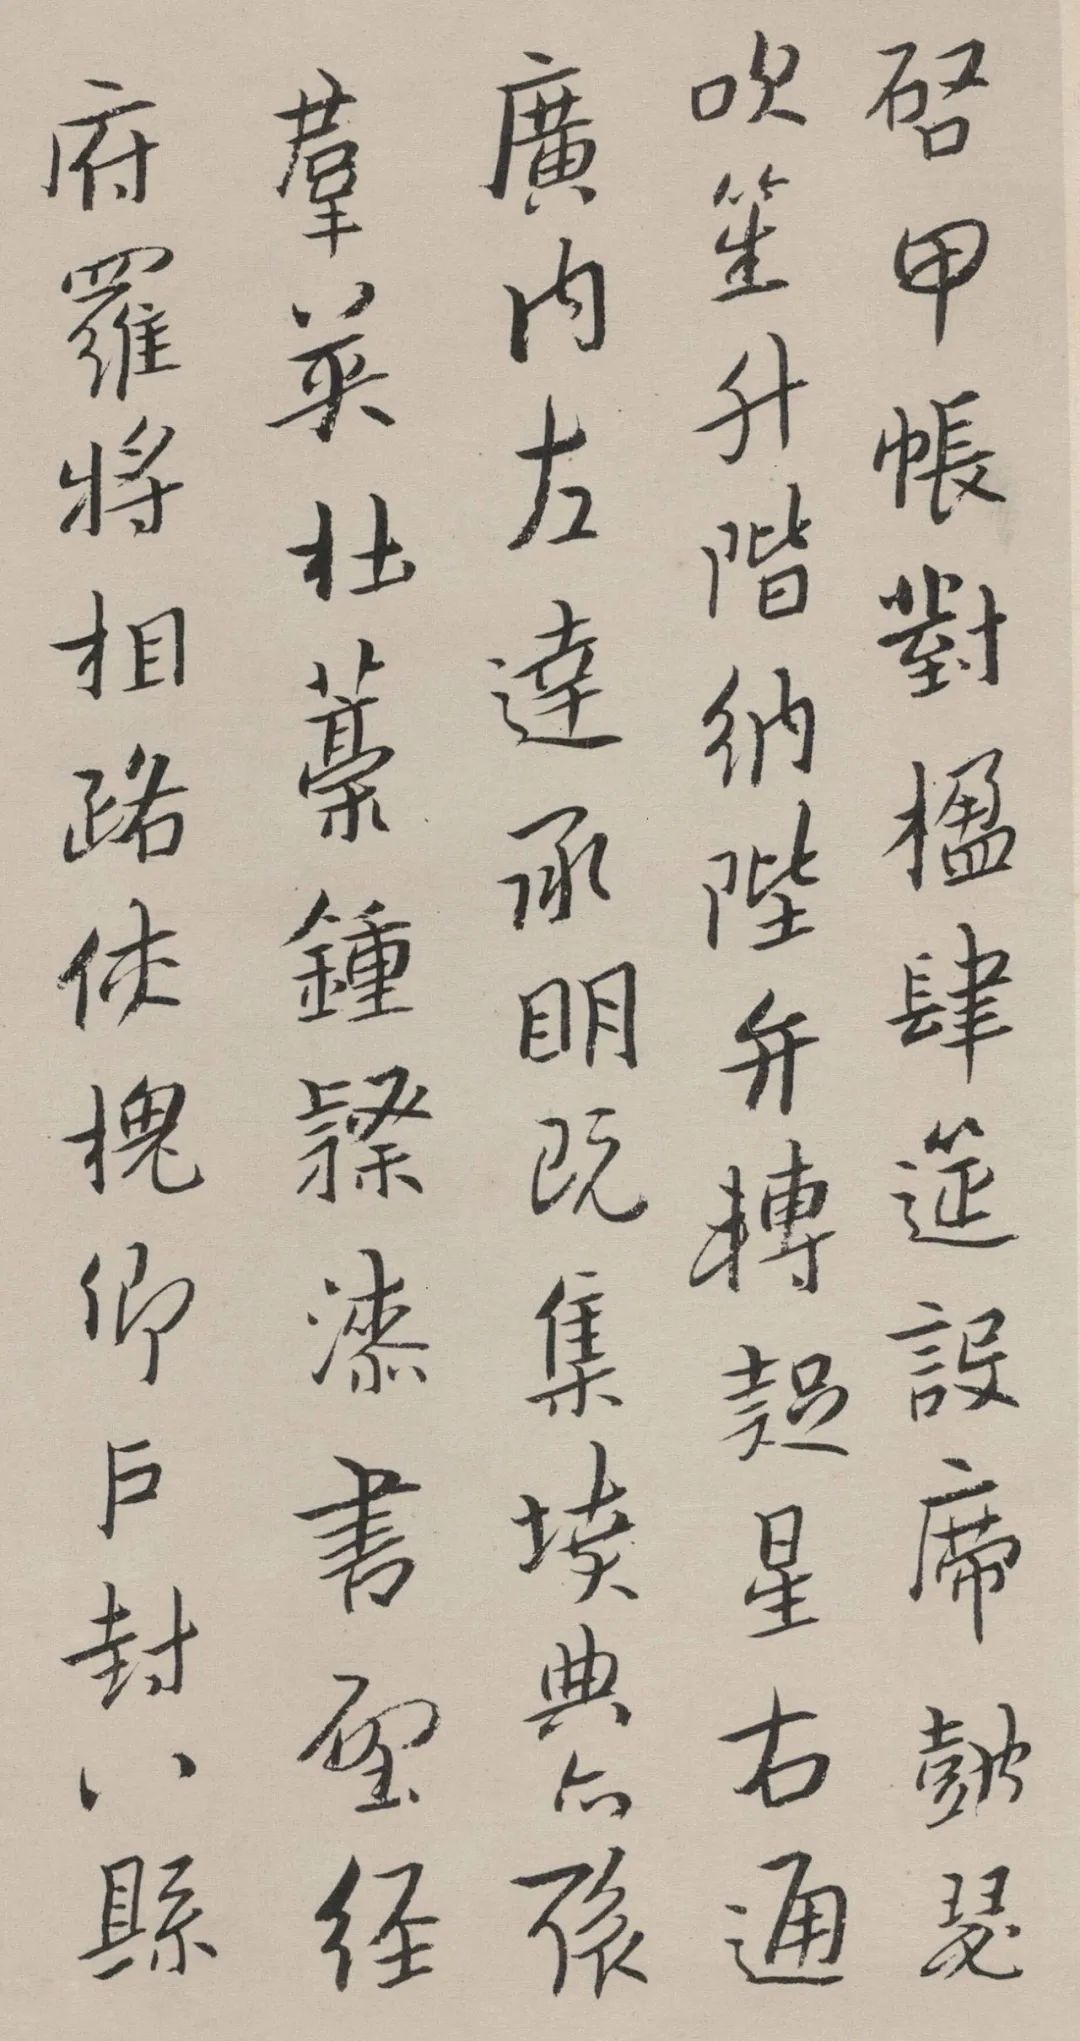 啓甲帳對楹肆筵設席鼓瑟
吹笙升階納陛弁轉疑星右通
廣内左達承明既集墳典亦聚
羣英杜藁鍾隸漆書壁经
府羅將相路俠槐卿户封八縣